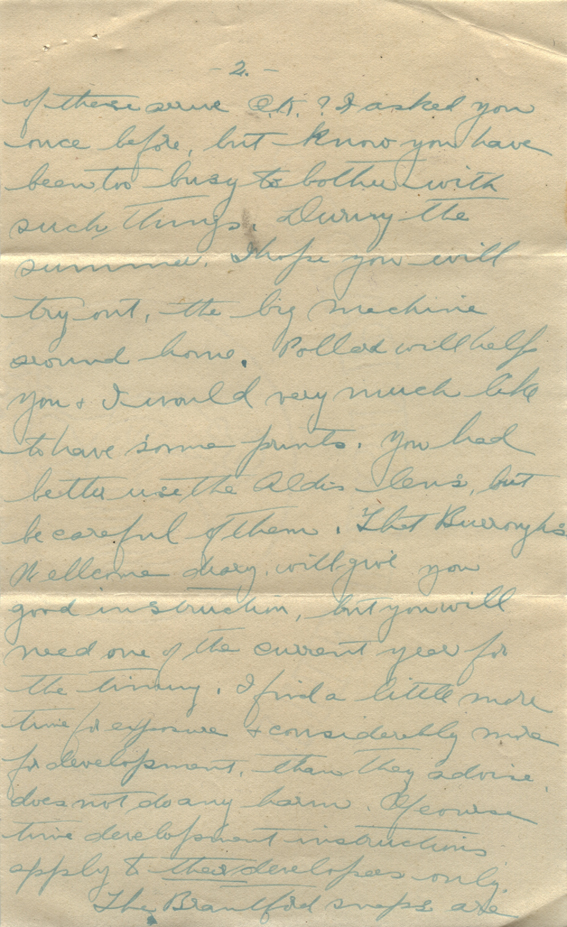 - 2. -
of these serve O.K.? I asked you
once before, but know you have
been too busy to bother with
such things. During the
summer. I hope you will
try out, the big machine
around home. Pollard will help
you & I would very much like
to have some prints. You had
better use the Aldis lens, but
be careful of them. That Burroughs
Wellcome diary, will give you
good instruction, but you will
need one of the current year for
the timing. I find a little more
time for exposure & considerably more
for development, than they advise,
does not do any harm. Of course
time development instructions
apply to their developers only.
The Brantford snaps are